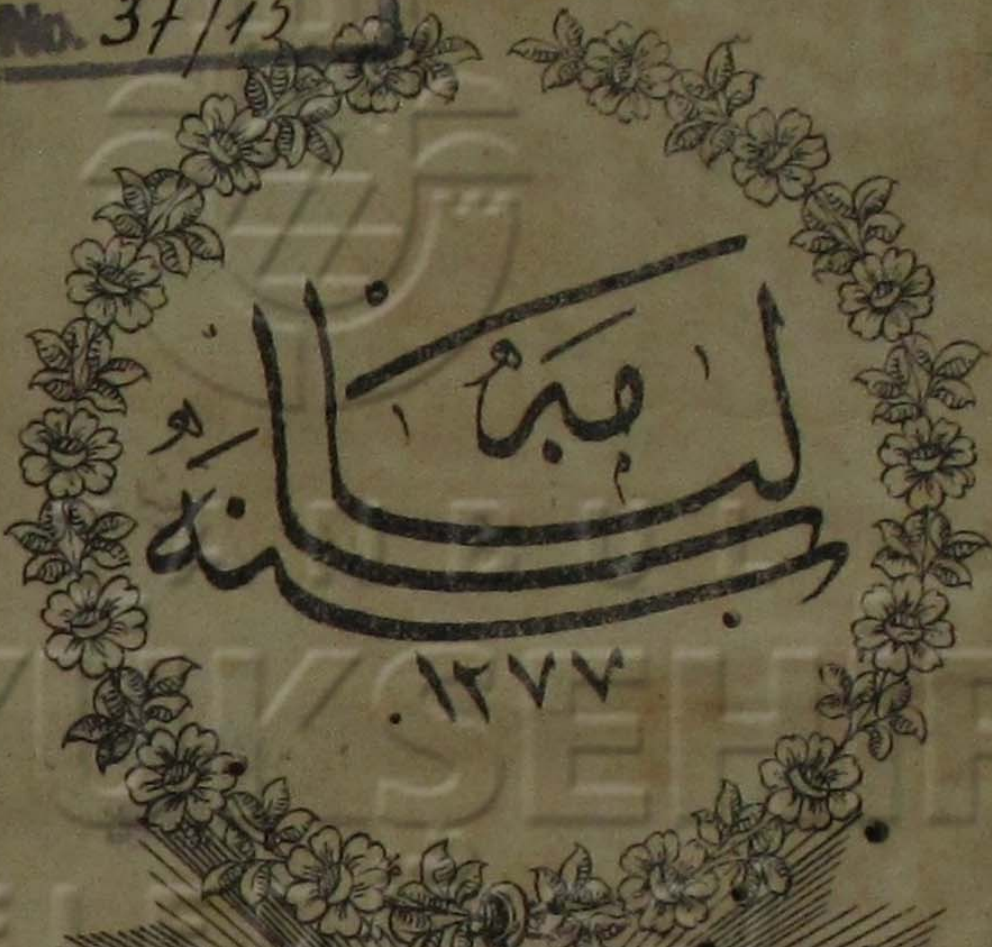 No. 37/15
سالنامه
سنه
١٢٧٧